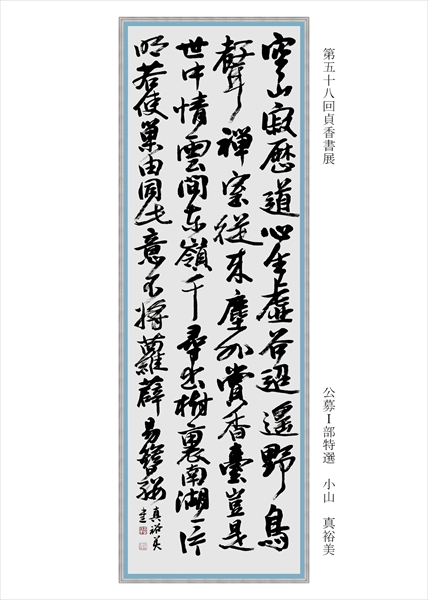 第五十八回貞香書展
公募Ⅰ部特選　小山　真裕美
空山寂歴道心生虚谷迢遥野鳥
聲禅室從来塵外賞香臺豈是
世中情雲間東嶺千尋出樹裏南湖一片
明若使巣由同此意不将蘿薜易簪纓
真裕美
書